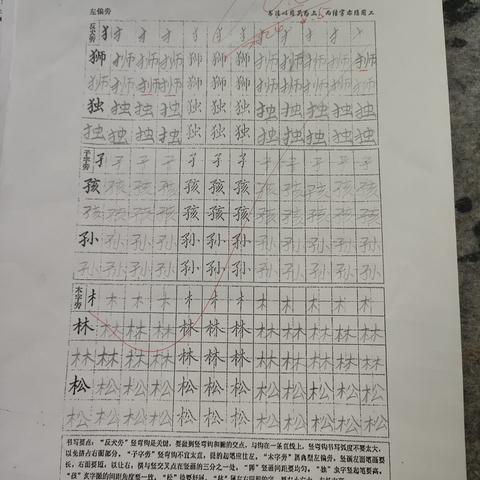 左偏旁
书法以用笔为上，而结字亦须用工
反犬旁 犭 犭 犭 犭 犭 犭 犭
狮 狮 狮 狮 狮 狮 狮 狮 狮 狮 狮 狮
狮 狮 狮 狮 狮 狮 狮 狮 狮 狮 狮 狮
独 独 独 独 独 独 独 独 独 独 独 独
独 独 独 独 独 独 独 独 独 独 独 独
子字旁 孑 孑 孑 孑 孑 孑 孑 孑 孑 孑 孑 孑
孩 孩 孩 孩 孩 孩 孩 孩 孩 孩 孩 孩
孩 孩 孩 孩 孩 孩 孩 孩 孩 孩 孩 孩
孙 孙 孙 孙 孙 孙 孙 孙 孙 孙 孙 孙
孙 孙 孙 孙 孙 孙 孙 孙 孙 孙 孙 孙
木字旁 木 木 木 木 木 木 木 木 木 木 木 木
林 林 林 林 林 林 林 林 林 林 林 林
林 林 林 林 林 林 林 林 林 林 林 林
松 松 松 松 松 松 松 松 松 松 松 松
松 松 松 松 松 松 松 松 松 松 松 松
书写要点：“反犬旁”竖弯钩是关键，要做到竖弯钩和撇的交点，与钩在一条直线上，竖弯钩书写弧度不要太大，
以免挤占右面部分。“子字旁”竖弯钩不宜太直，提的起笔应往左。“木字旁”属典型左偏旁，竖画左面要
长，右面要短，以让右，横与竖交叉点在竖画的三分之一处。“狮”竖画间距要均匀，“独”虫字竖起笔要高，